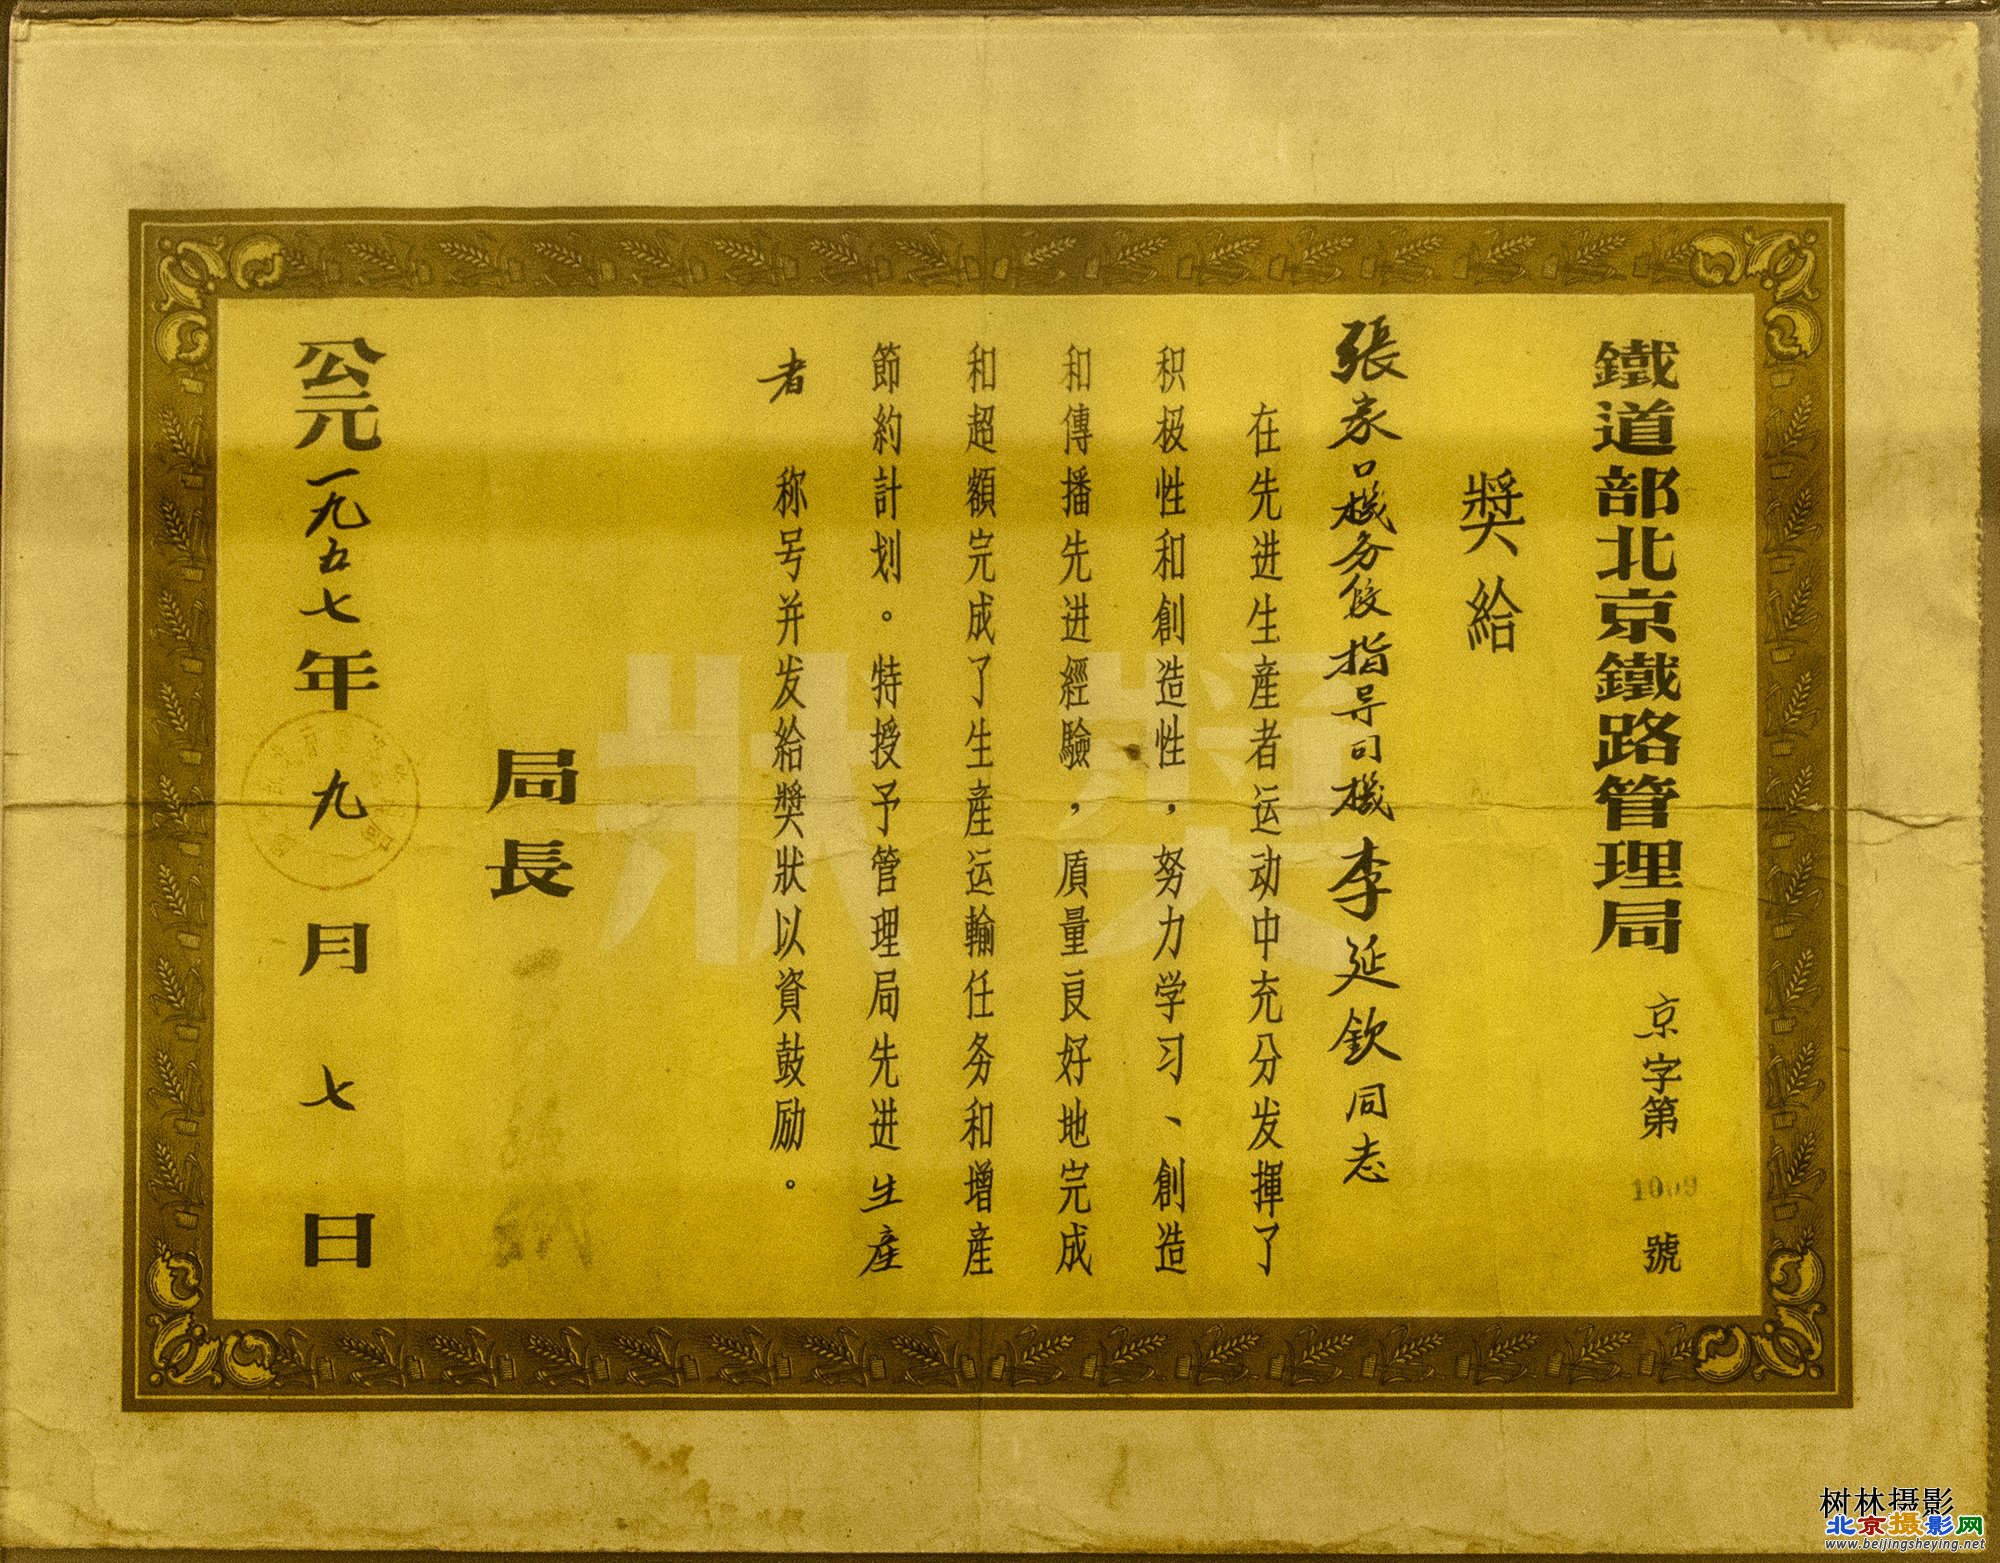 鐵道部北京鐵路管理局
京字第 號
奬給
張家口機务段指导司機李延欽同志
在先进生産者运动中充分发揮了
积极性和創造性，努力学习、創造
和傳播先进經驗，质量良好地完成
和超額完成了生産运輸任务和增産
節約計划。特授予管理局先进生産
者 称号并发給奬狀以資鼓励。
局長
公元一九五七年九月七日
奬狀
树林摄影
北京摄影网
www.beijingsheying.net